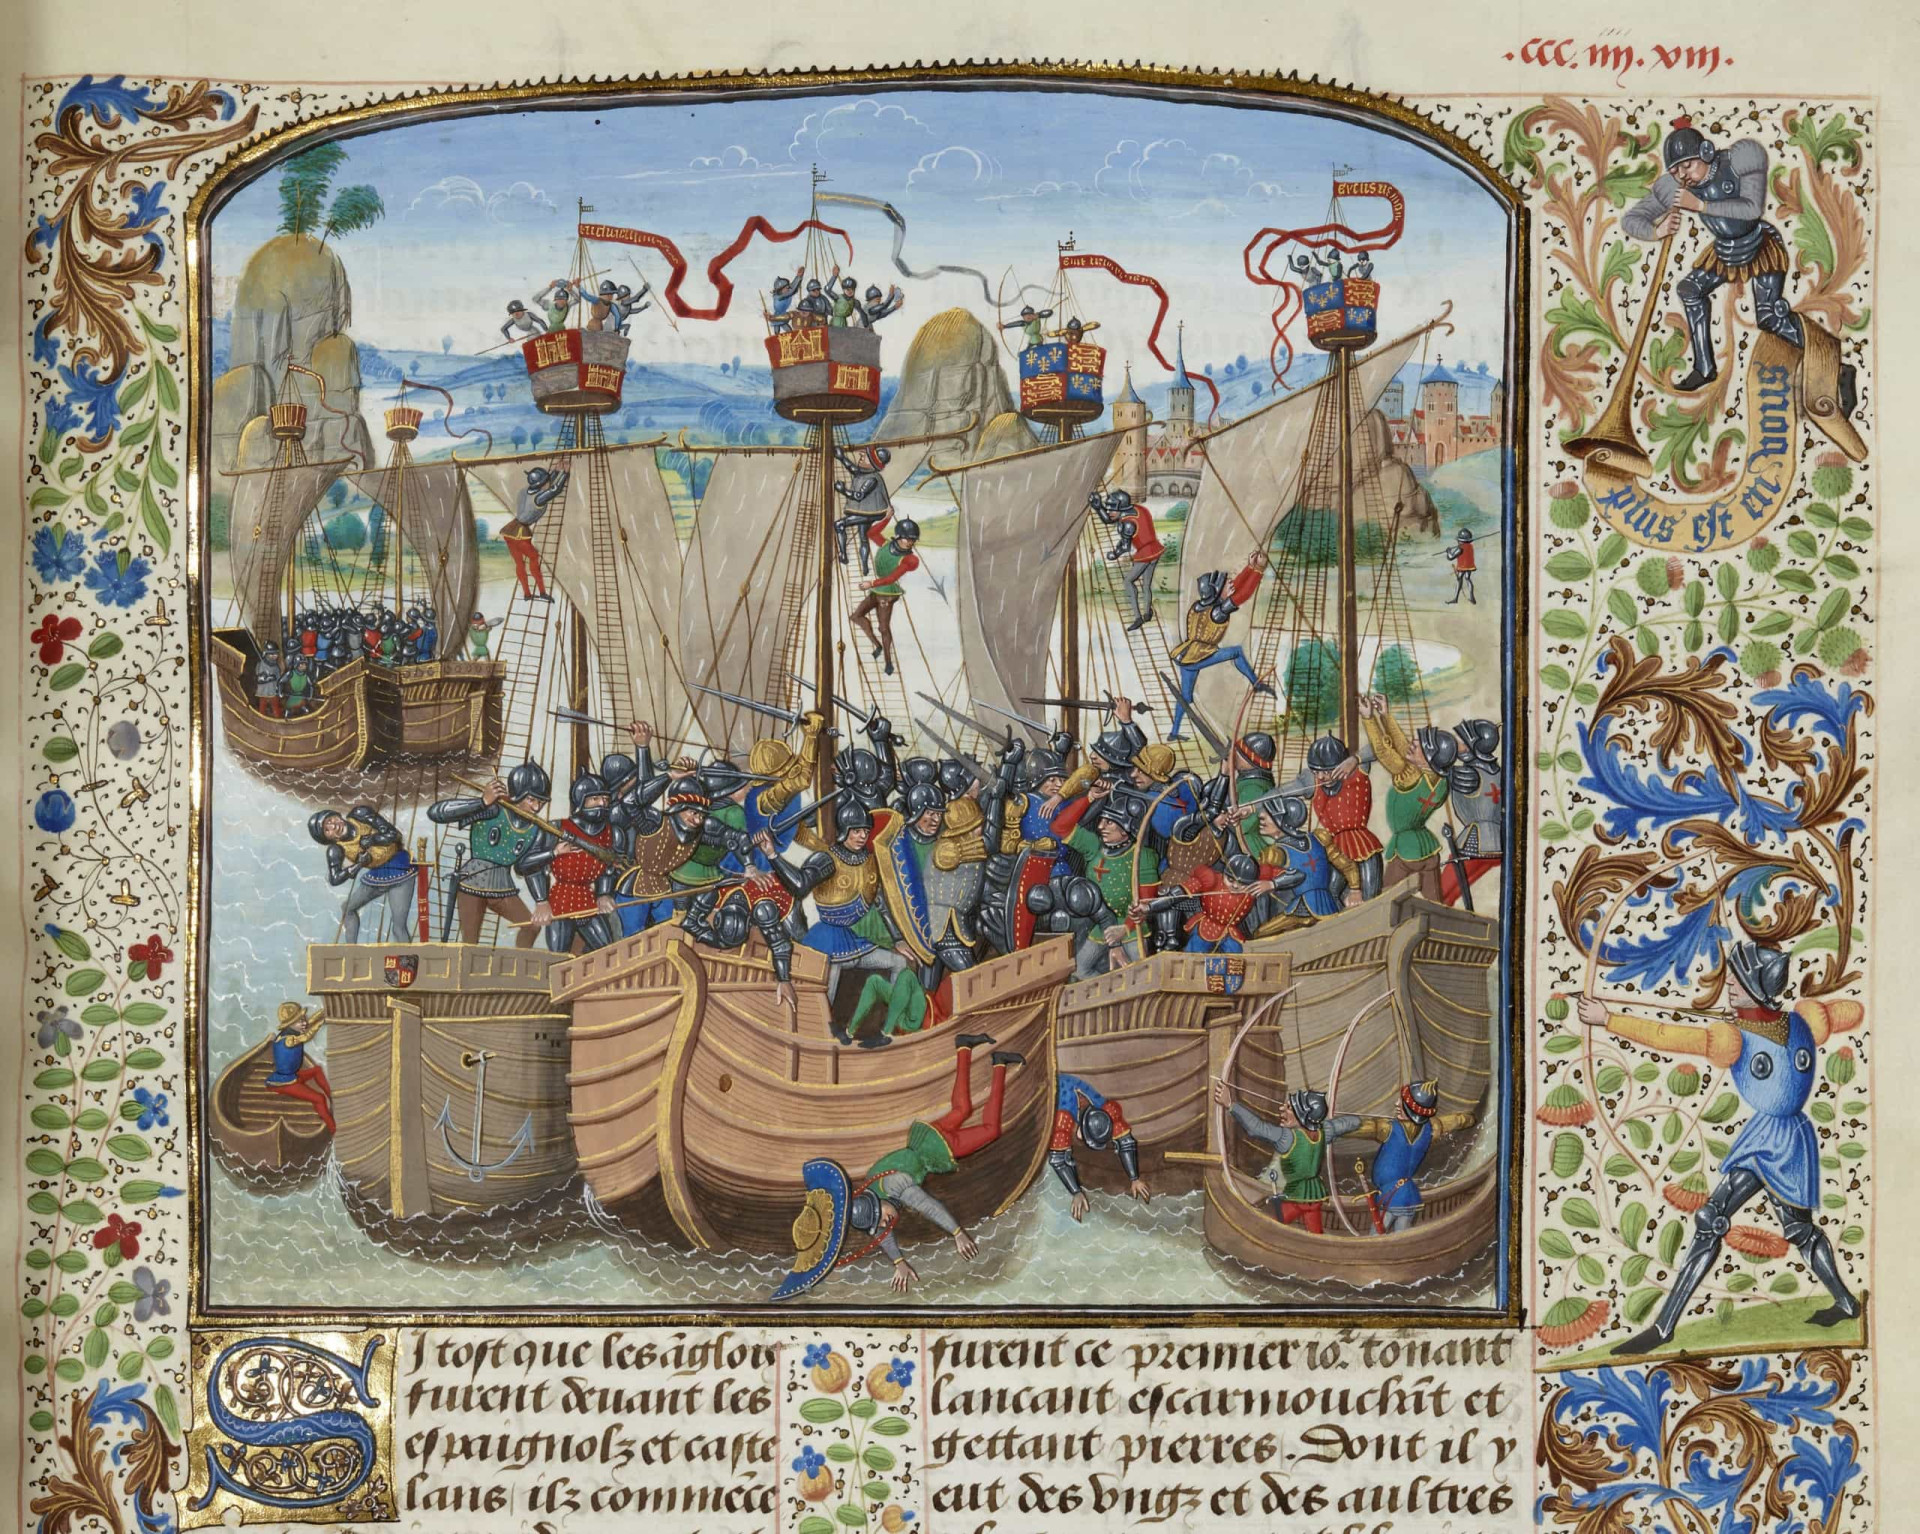 .CCC. iiii. xviii.
plus est en vous
SI tost que les ãglois
furent deuant les
espaignolz et caste
lans ilz commẽce
furent ce premier io.ᷓ tonant
lancant escarmouchãt et
gettant pierres. Dont il y
eut des vngz et des aultres